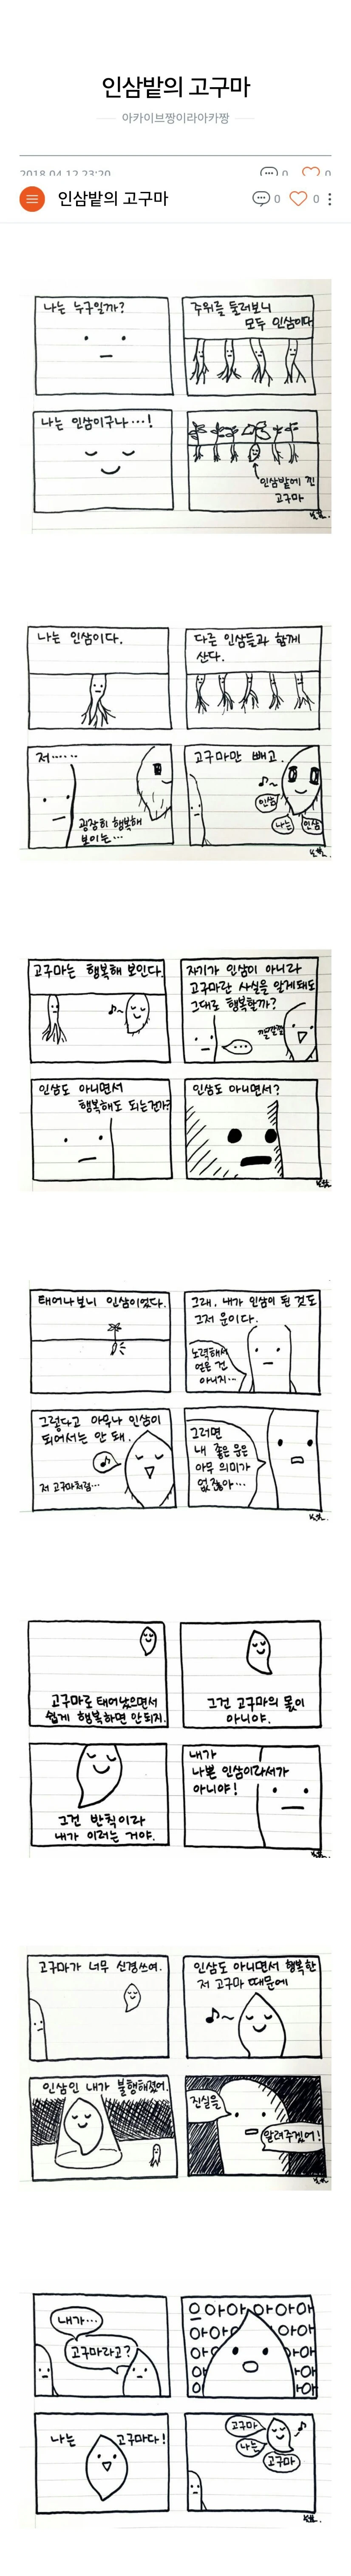 인삼밭의 고구마
아카이브짱이라아카짱
2018.04.12 23:20
0
0
인삼밭의 고구마
0
0
나는 누구일까?
주위를 둘러보니
모두 인삼이다
나는 인삼이구나…!
인삼밭에 낀
고구마
나는 인삼이다.
다른 인삼들과 함께
산다.
저……
굉장히 행복해
보이는…
고구마만 빼고.
인삼
나는
인삼
고구마는 행복해 보인다.
자기가 인삼이 아니라
고구마란 사실을 알게돼도
그대로 행복할까?
…
깔깔깔
인삼도 아니면서
행복해도 되는건가?
인삼도 아니면서?
태어나보니 인삼이었다.
그래. 내가 인삼이 된 것도
그저 운이다.
노력해서
얻은 건
아니지…
그렇다고 아무나 인삼이
되어서는 안 돼.
저 고구마처럼…
그러면
내 좋은 운은
아무 의미가
없잖아…
고구마로 태어났으면서
쉽게 행복하면 안되지.
그건 고구마의 몫이
아니야.
그건 반칙이라
내가 이러는 거야.
내가
나쁜 인삼이라서가
아니야!
고구마가 너무 신경쓰여.
인삼도 아니면서 행복한
저 고구마 때문에
인삼인 내가 불행해졌어.
진실을
알려주겠어!
내가…
고구마라고?
으아아아아
나는 고구마다!
고구마
나는
고구마